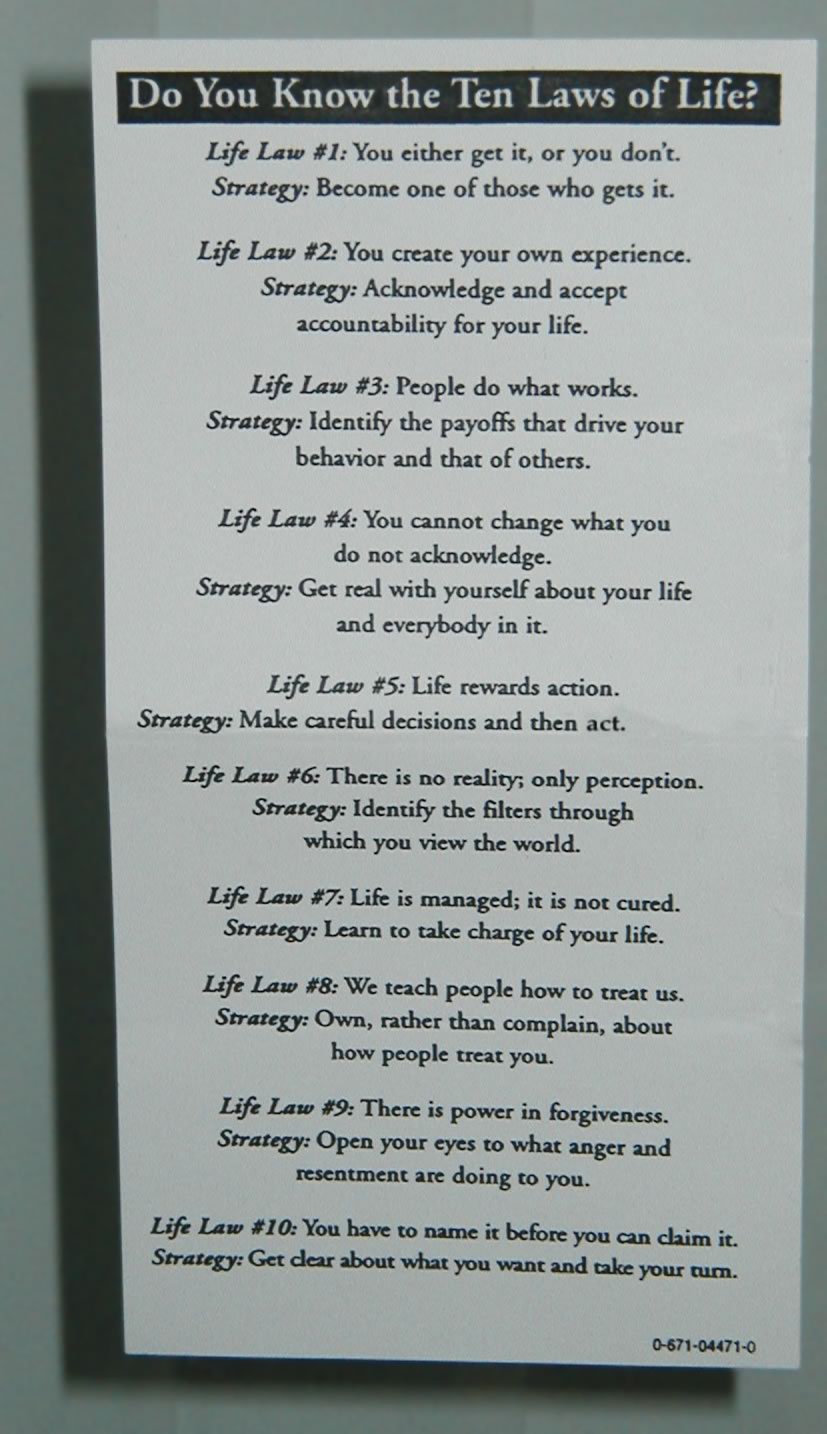 Do You Know the Ten Laws of Life?
Life Law #1: You either get it, or you don't.
Strategy: Become one of those who gets it.
Life Law #2: You create your own experience.
Strategy: Acknowledge and accept
accountability for your life.
Life Law #3: People do what works.
Strategy: Identify the payoffs that drive your
behavior and that of others.
Life Law #4: You cannot change what you
do not acknowledge.
Strategy: Get real with yourself about your life
and everybody in it.
Life Law #5: Life rewards action.
Strategy: Make careful decisions and then act.
Life Law #6: There is no reality; only perception.
Strategy: Identify the filters through
which you view the world.
Life Law #7: Life is managed; it is not cured.
Strategy: Learn to take charge of your life.
Life Law #8: We teach people how to treat us.
Strategy: Own, rather than complain, about
how people treat you.
Life Law #9: There is power in forgiveness.
Strategy: Open your eyes to what anger and
resentment are doing to you.
Life Law #10: You have to name it before you can claim it.
Strategy: Get clear about what you want and take your turn.
0-671-04471-0